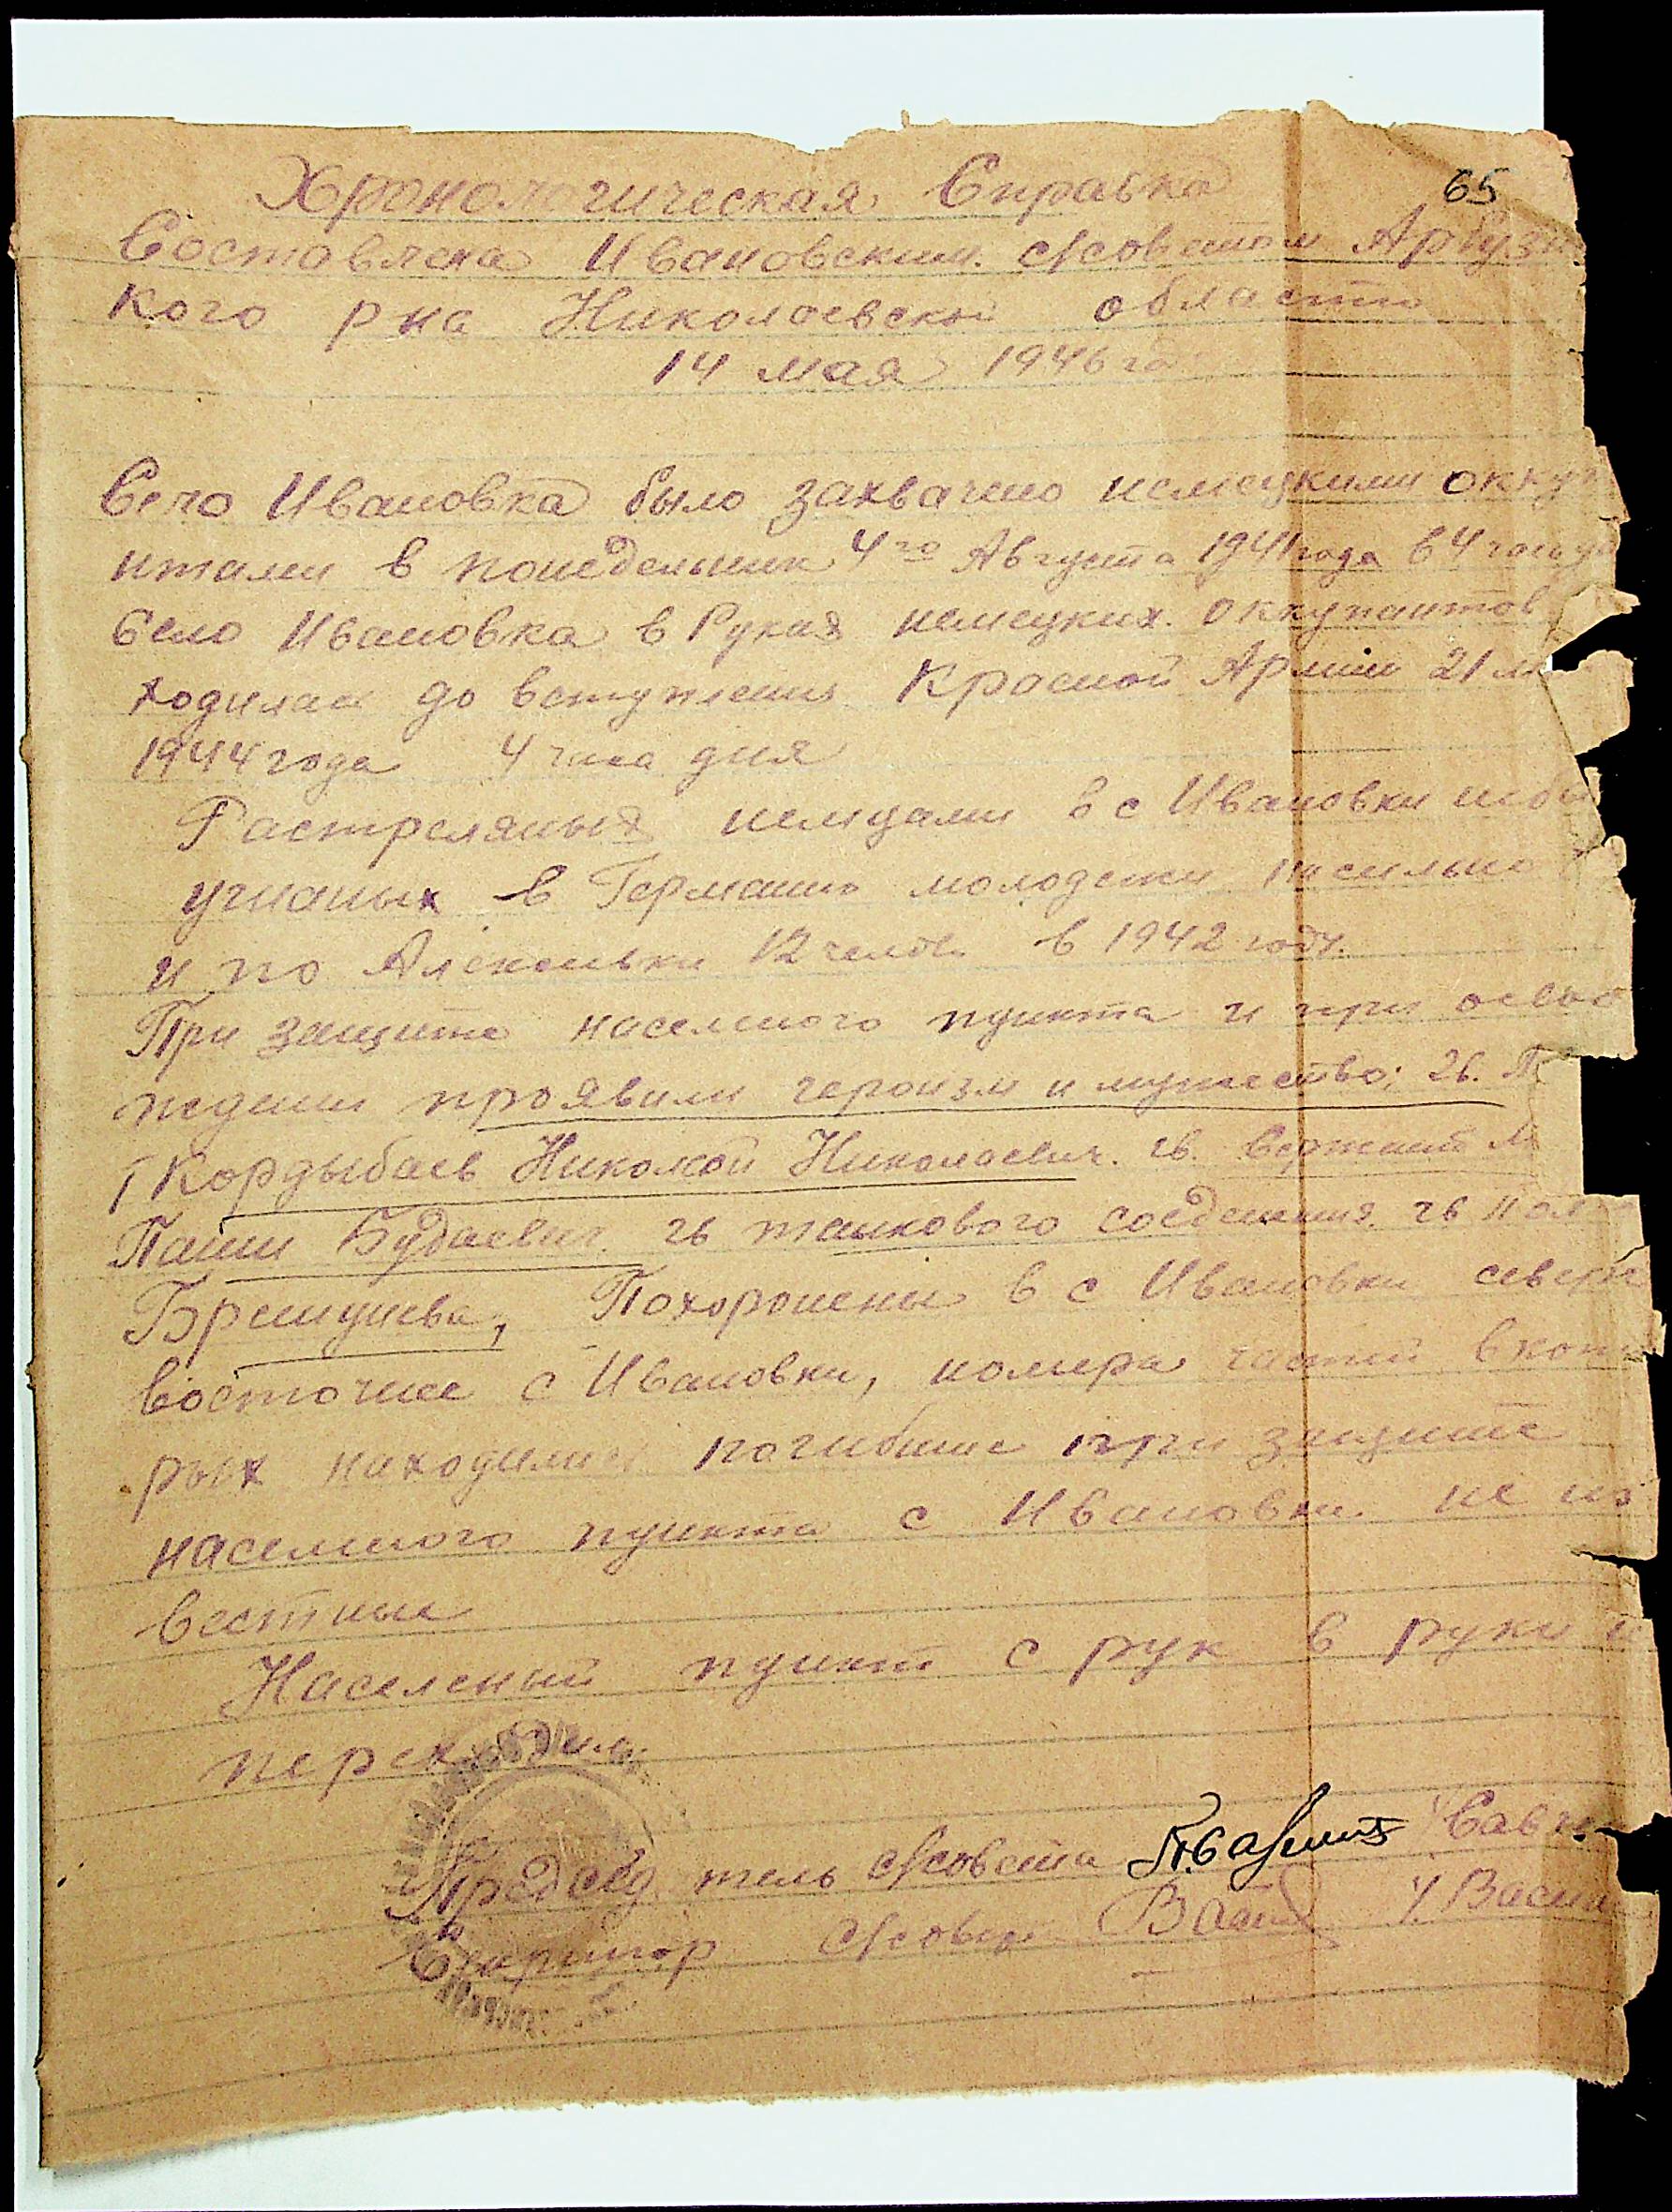 65
Хронологическая Справка
Составлена Ивановским с/советом Арбузи
кого рна Николаевской области
14 мая 1946 го
Село Ивановка было захвачено немецкими оккуп
нтами в понедельник 4го Августа 1941 года в 4 часа
Село Ивановка в Руках немецких оккупантов
ходилась до вступления Красной Армии 21 м
1944 года 4 часа дня
Растреляных немцами в с Ивановки небы
угнаных в Германию молодежи насильно
и по 12 челов в 1942 году.
При защите населеного пункта и при освоо
ждении проявили героизм и мужество; гв. П
Кордыбаев Николай Николаевич. гв. Сержант М
Паши Будаевич гв танкового соединения гв
Похоронены в с Ивановки северо
восточнее с Ивановки, номера частей в кото
рых находились погибшие при защите
населеного пункта с Ивановки не из
вестные
Населеный пункт с рук в руки н
переходил
Председ тель с/совета /Савч
Секритор с/совет /Васил